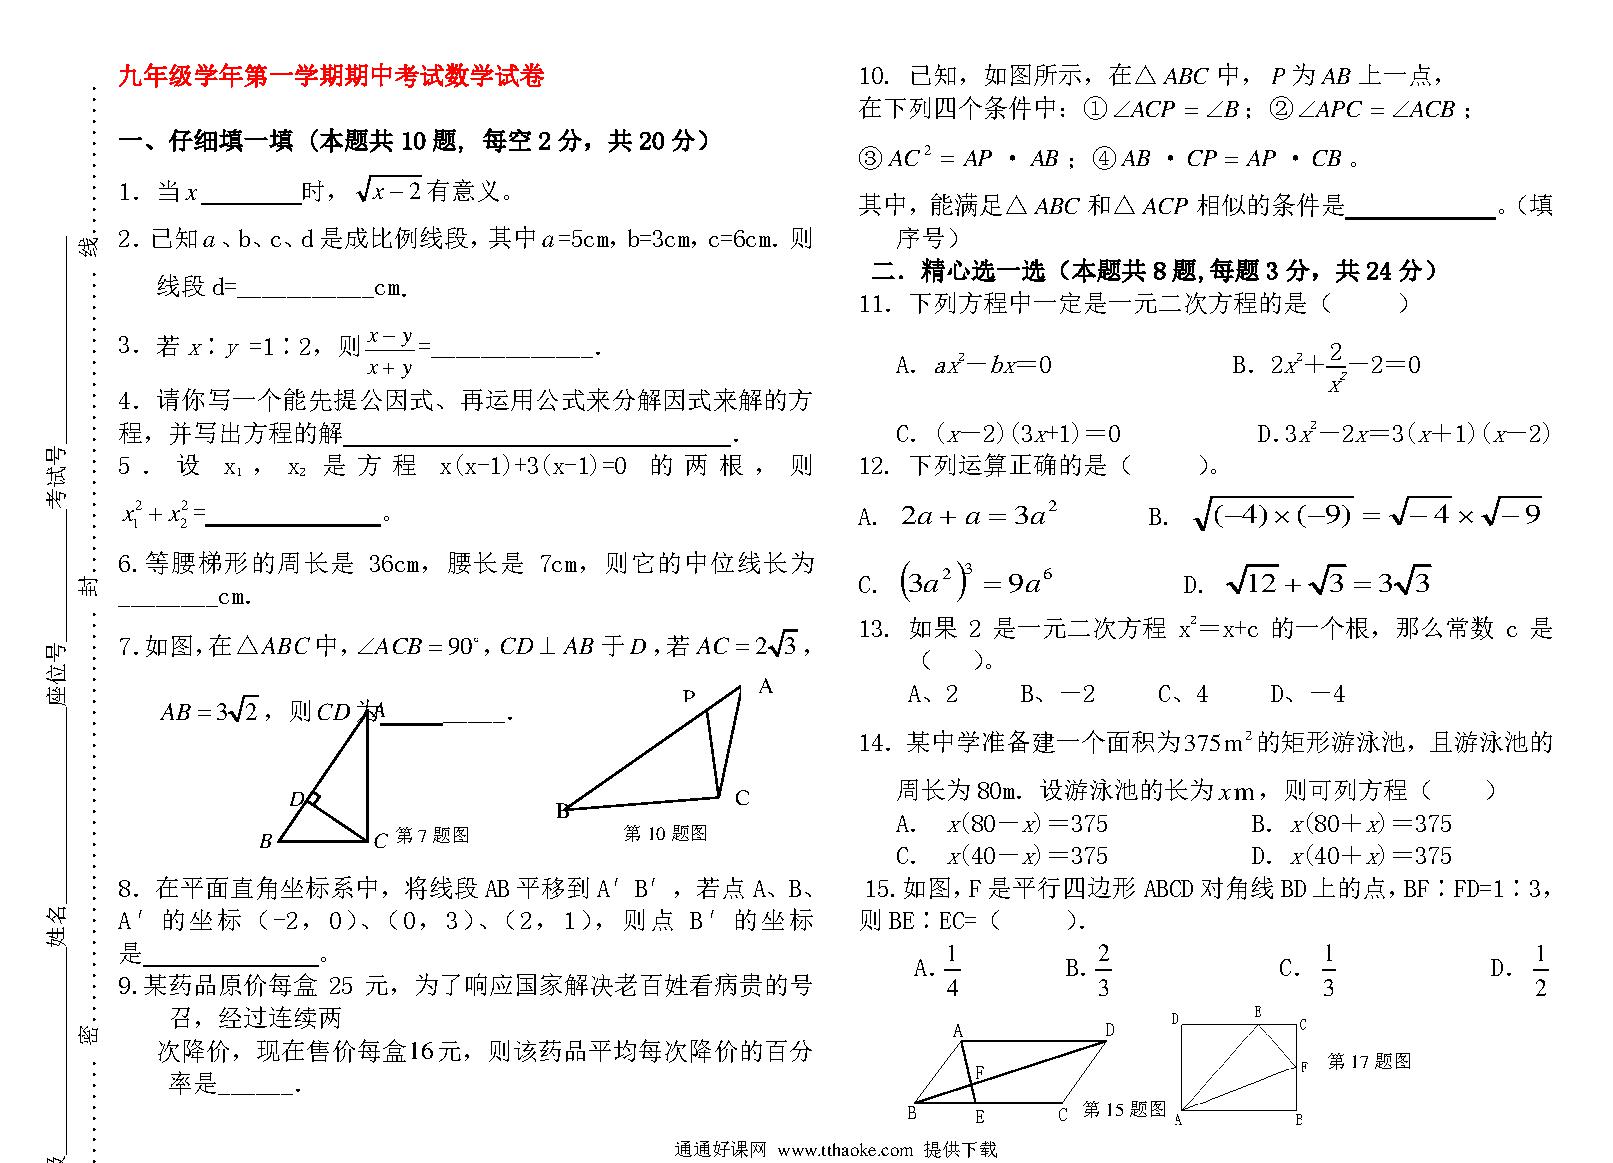 九年级学年第一学期期中考试数学试卷
一、仔细填一填 (本题共 10 题, 每空 2 分，共 20 分)
1. 当 x ________时，√(x−2) 有意义。
2. 已知 a、b、c、d 是成比例线段，其中 a=5cm，b=3cm，c=6cm．则
线段 d=___________cm．
3. 若 x∶y =1∶2，则 (x−y)/(x+y) =_____________．
4．请你写一个能先提公因式、再运用公式来分解因式来解的方
程，并写出方程的解______________________________．
5．设 x₁，x₂ 是方程 x(x-1)+3(x-1)=0 的两根，则
x₁²+x₂²=______________。
6.等腰梯形的周长是 36cm，腰长是 7cm，则它的中位线长为
________cm．
7.如图，在△ABC 中，∠ACB=90°，CD⊥AB 于 D，若 AC=2√3，
AB=3√2，则 CD 为__________．
A
D
B
C
第 7 题图
P
A
B
C
第 10 题图
8．在平面直角坐标系中，将线段 AB 平移到 A′B′，若点 A、B、
A′的坐标（-2，0）、（0，3）、（2，1），则点 B′的坐标
是______________。
9.某药品原价每盒 25 元，为了响应国家解决老百姓看病贵的号
召，经过连续两
次降价，现在售价每盒16元，则该药品平均每次降价的百分
率是______．
10. 已知，如图所示，在△ABC 中，P 为 AB 上一点，
在下列四个条件中：①∠ACP=∠B；②∠APC=∠ACB；
③AC²=AP·AB；④AB·CP=AP·CB。
其中，能满足△ABC 和△ACP 相似的条件是____________。（填
序号）
二．精心选一选（本题共 8 题,每题 3 分，共 24 分）
11. 下列方程中一定是一元二次方程的是（　　）
A. ax²－bx＝0　B. 2x²＋2/x²－2＝0
C. (x－2)(3x+1)＝0　D.3x²－2x＝3(x＋1)(x－2)
12. 下列运算正确的是（　　）。
A. 2a+a=3a²　B. √((−4)×(−9))=√−4×√−9
C. (3a²)³=9a⁶　D. √12+√3=3√3
13. 如果 2 是一元二次方程 x²＝x+c 的一个根，那么常数 c 是
（　　）。
A、2　B、－2　C、4　D、－4
14. 某中学准备建一个面积为375m²的矩形游泳池，且游泳池的
周长为 80m．设游泳池的长为 xm，则可列方程（　　）
A. x(80－x)＝375　B. x(80＋x)＝375
C. x(40－x)＝375　D. x(40＋x)＝375
15.如图，F 是平行四边形 ABCD 对角线 BD 上的点，BF∶FD=1∶3，
则 BE∶EC=（　　）．
A. 1/4　B. 2/3　C. 1/3　D. 1/2
A
D
F
B
E
C
第 15 题图
D
E
C
F
A
B
第 17 题图
考试号
座位号
姓名
线
封
密
通通好课网 www.tthaoke.com 提供下载